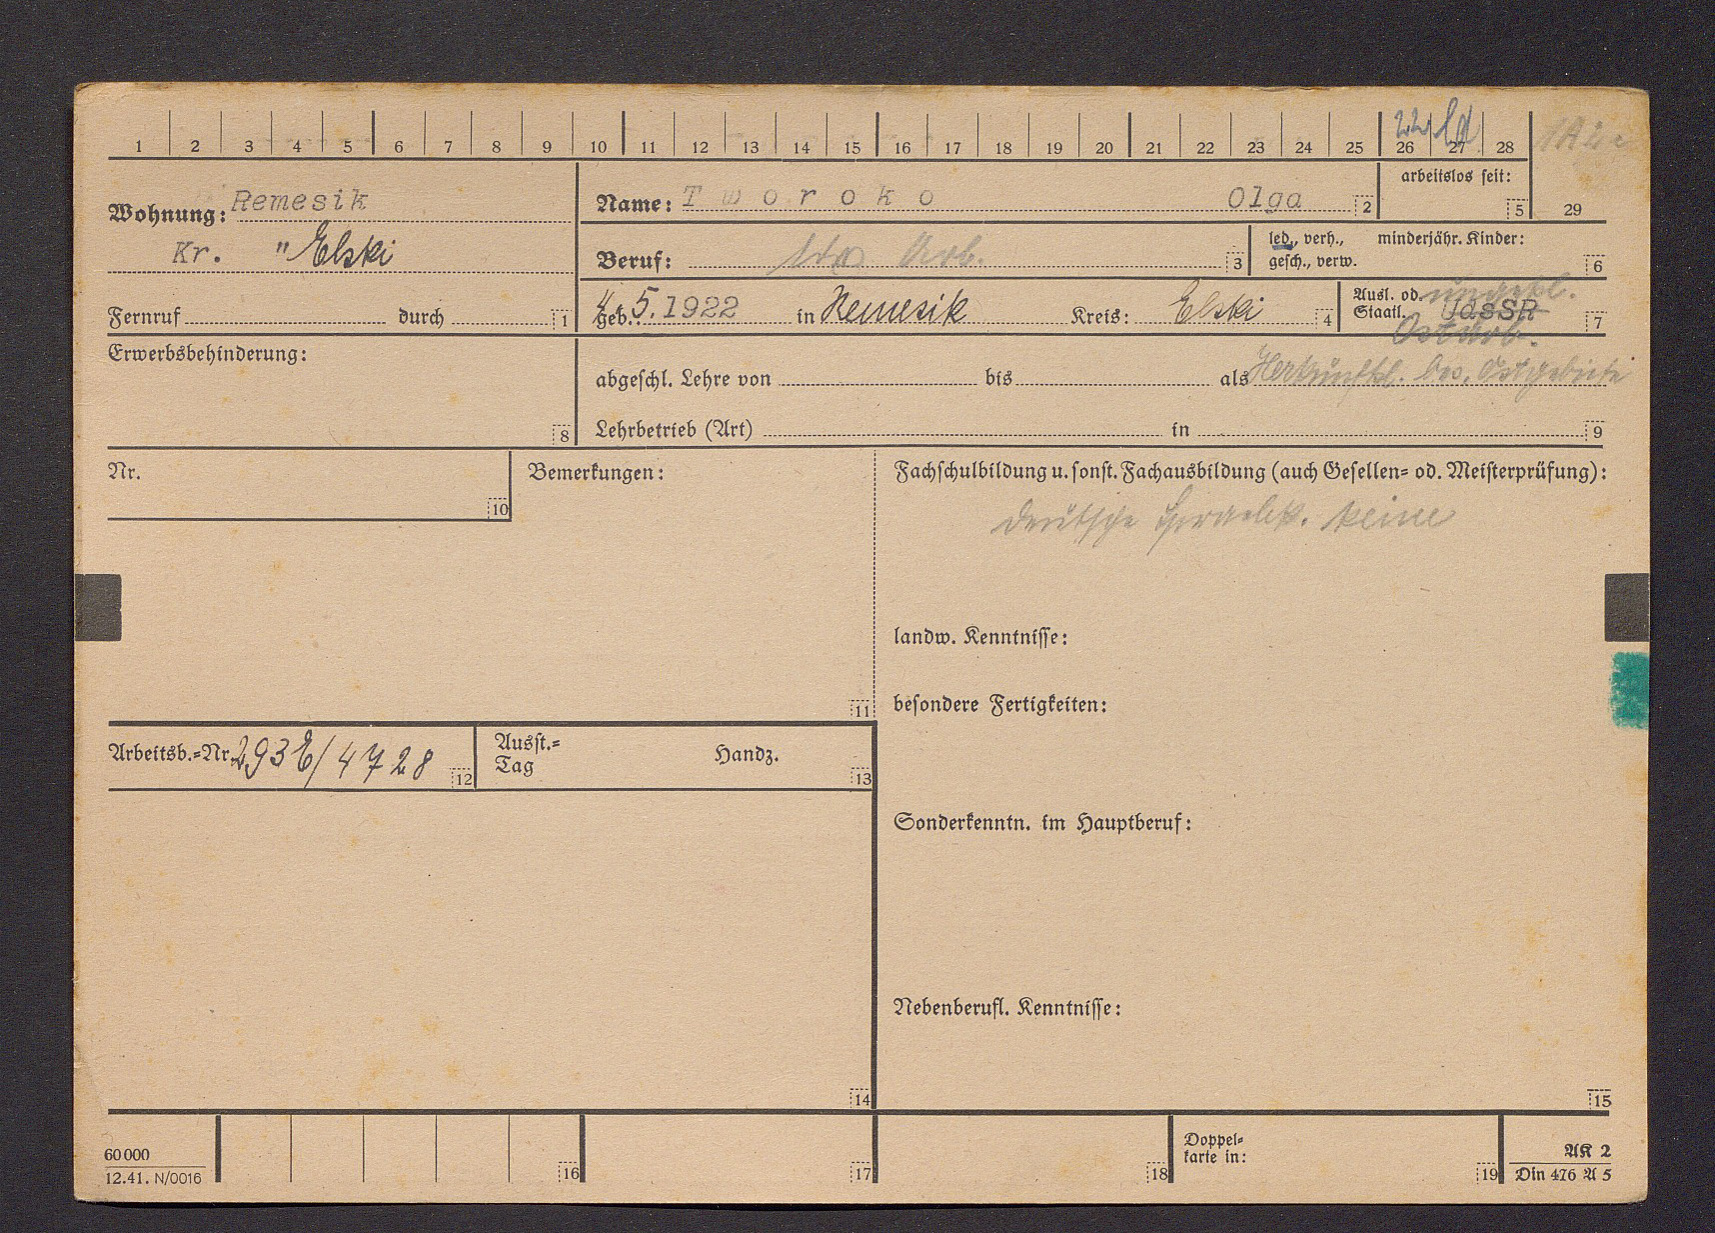 1 2 3 4 5 6 7 8 9 10 11 12 13 14 15 16 17 18 19 20 21 22 23 24 25 26 27 28
29
Wohnung: Remesik
Kr. " Elski
Fernruf durch 1
Name: Tworoko Olga 2
arbeitslos seit: 5
Beruf: Arb. 3
led., verh., minderjähr. Kinder:
gesch., verw. 6
geb. 4.5.1922 in Remesik Kreis: Elski 4
Ausl. od. ungekl.
Staatl. UdSSR 7
Ostarb.
Erwerbsbehinderung: 8
abgeschl. Lehre von bis als Herkunftl. bes. Ostgebiete
Lehrbetrieb (Art) in 9
Nr. 10
Bemerkungen: 11
Fachschulbildung u. sonst. Fachausbildung (auch Gesellen= od. Meisterprüfung):
deutsche Sprachk. keine
landw. Kenntnisse:
besondere Fertigkeiten:
Arbeitsb.=Nr. 293 E/4728 12
Ausst.=
Tag Handz. 13
Sonderkenntn. im Hauptberuf:
Nebenberufl. Kenntnisse:
14 15
60 000
12.41. N/0016
16 17 18
Doppel=
karte in: 19
AK 2
Din 476 A 5